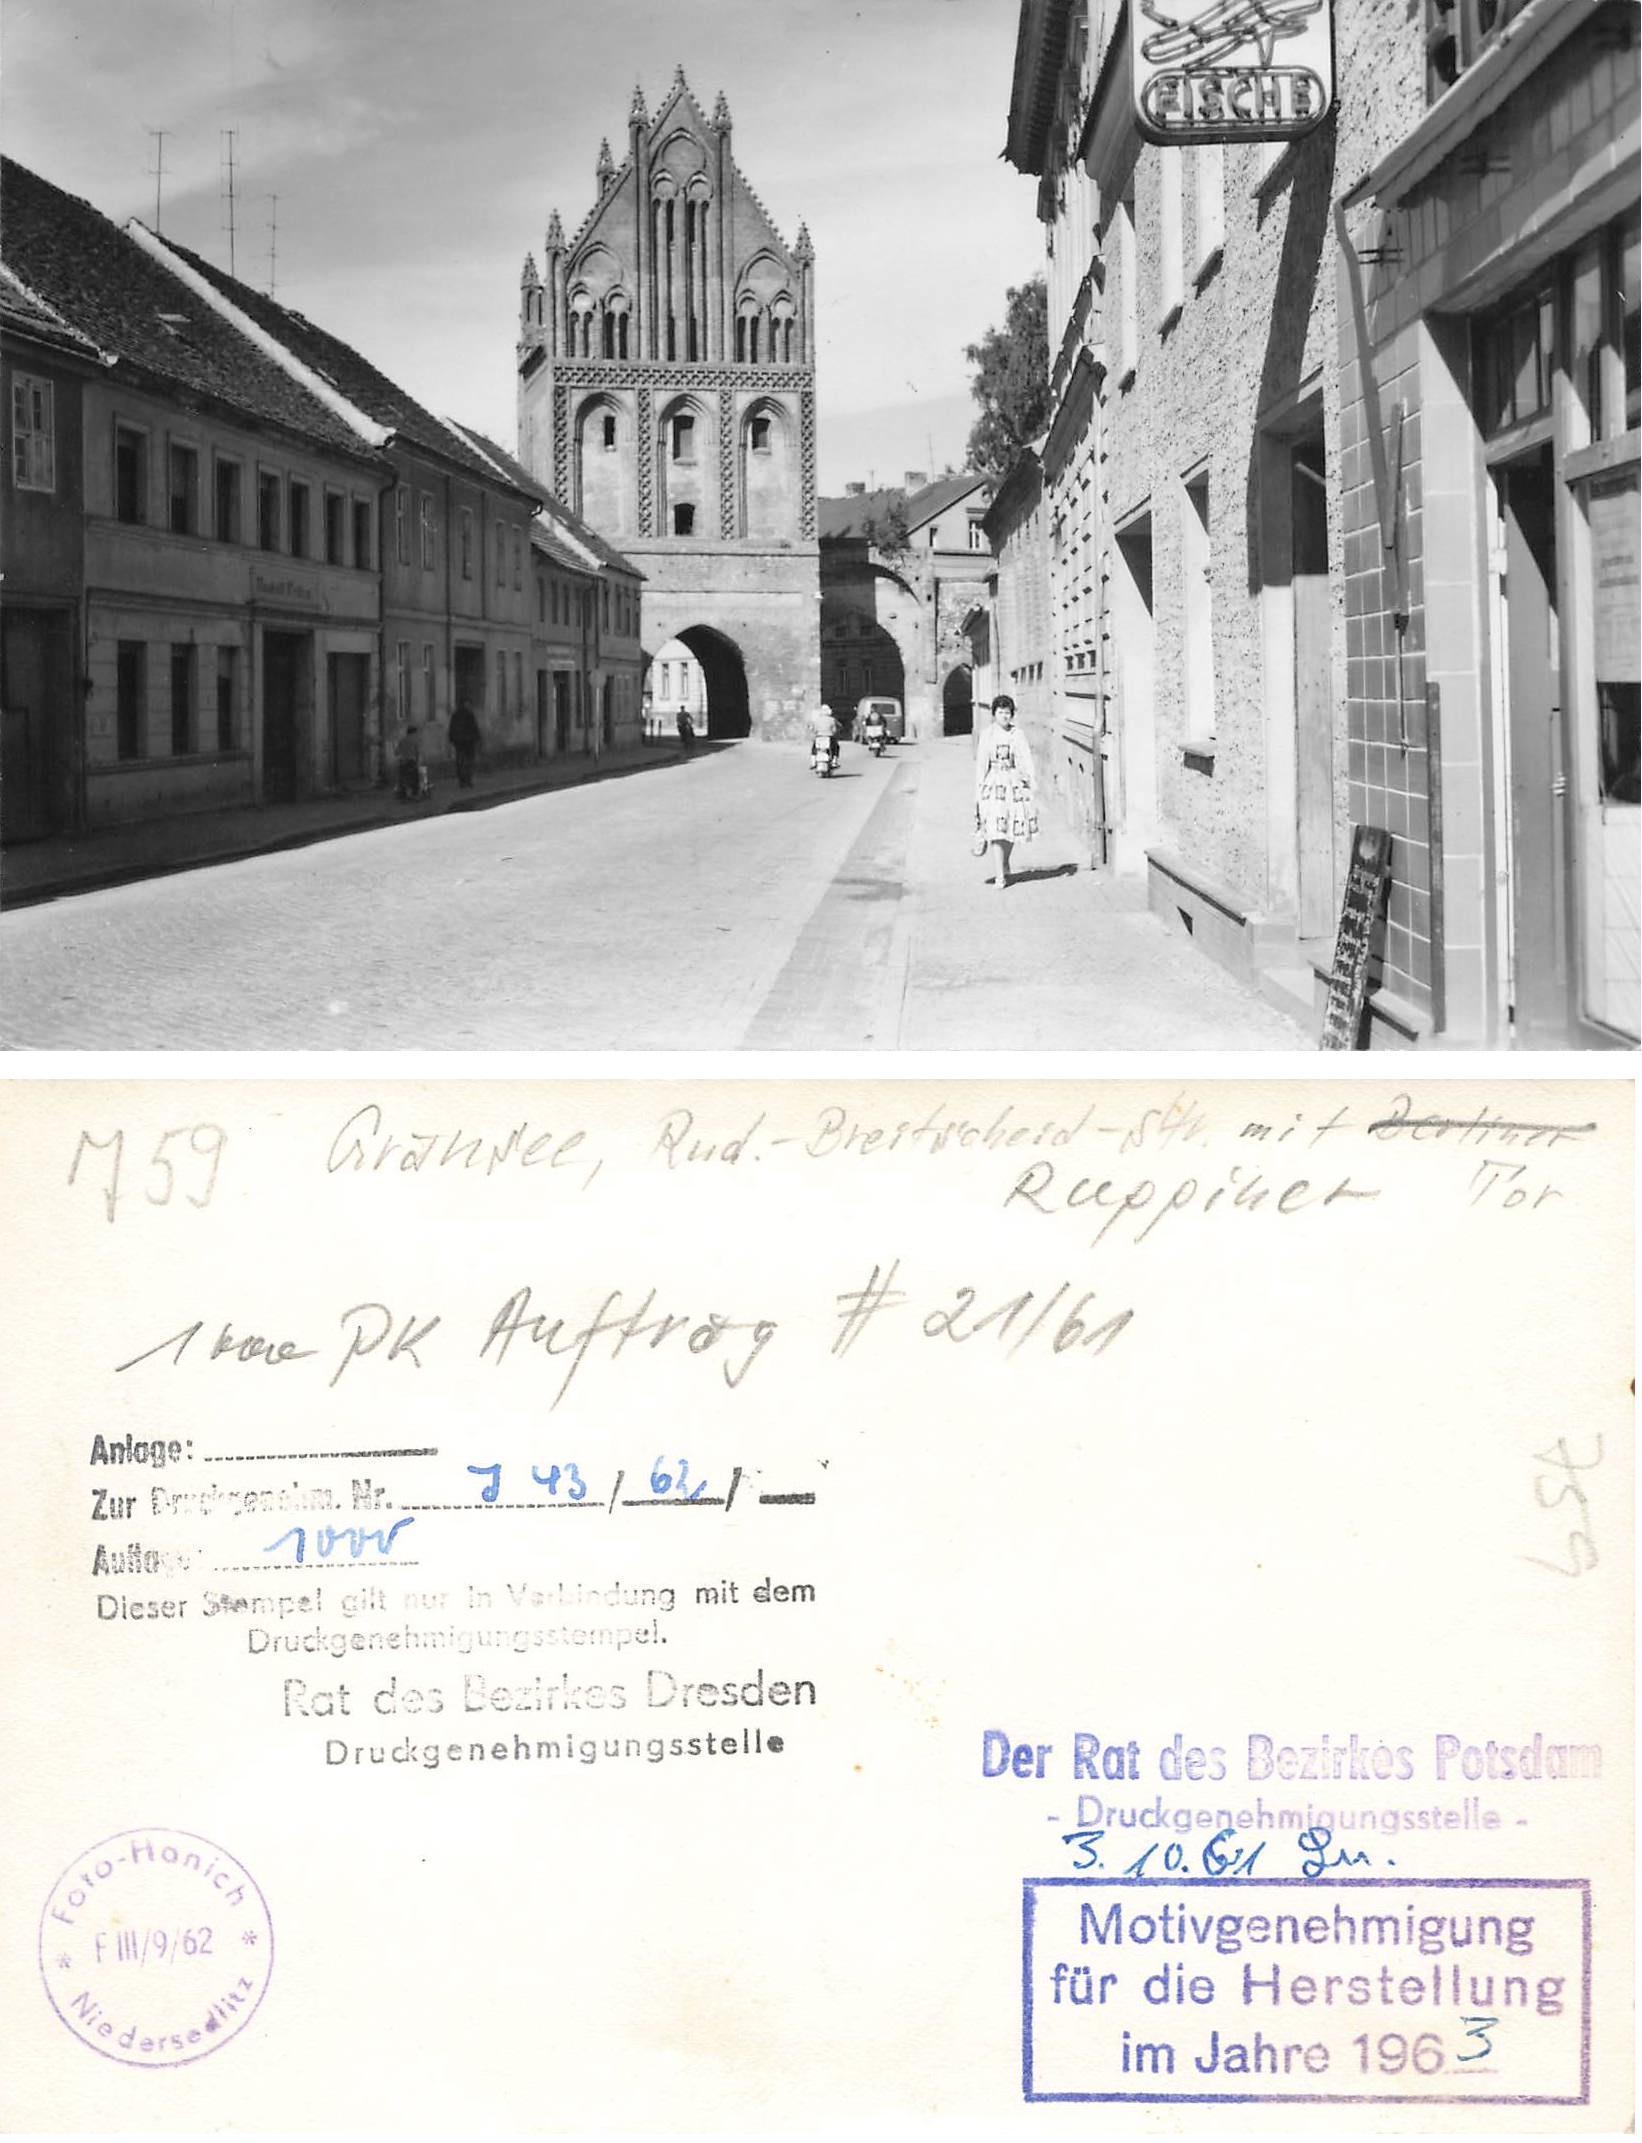 FISCHE
M 59 Gransee, Rud.-Breitscheid-Str. mit Berliner
Ruppiner Tor
1000 PK Auftrag # 21/61
Anlage:
Zur Druckgenehm. Nr. J 43 / 62 /
Auflage: 1000
Dieser Stempel gilt nur in Verbindung mit dem
Druckgenehmigungsstempel.
Rat des Bezirkes Dresden
Druckgenehmigungsstelle
Der Rat des Bezirkes Potsdam
- Druckgenehmigungsstelle -
3.10.61
Motivgenehmigung
für die Herstellung
im Jahre 1963
Foto-Hanich
F III/9/62
Niedersedlitz